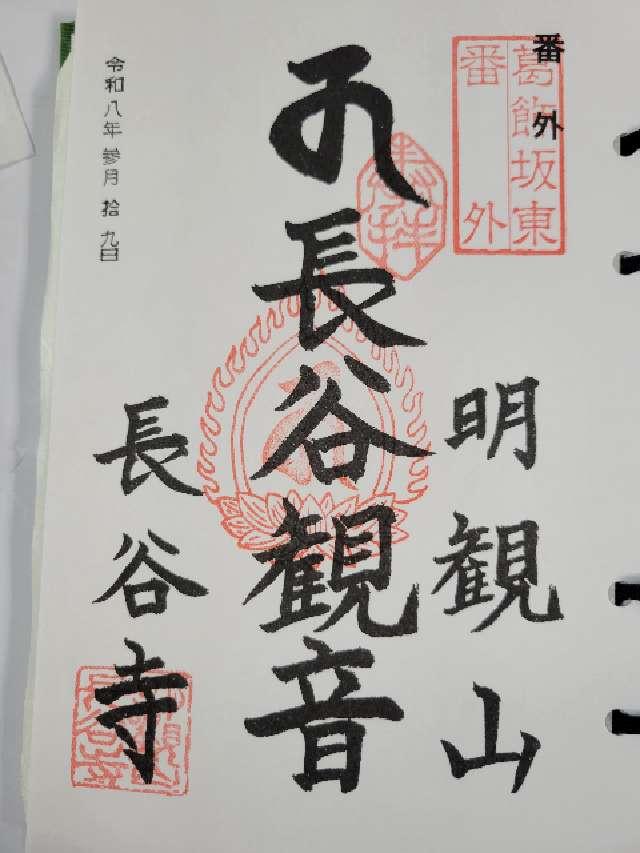 番外
葛飾坂東
番外
奉拝
明観山
長谷観音
長谷寺
令和八年参月拾九日